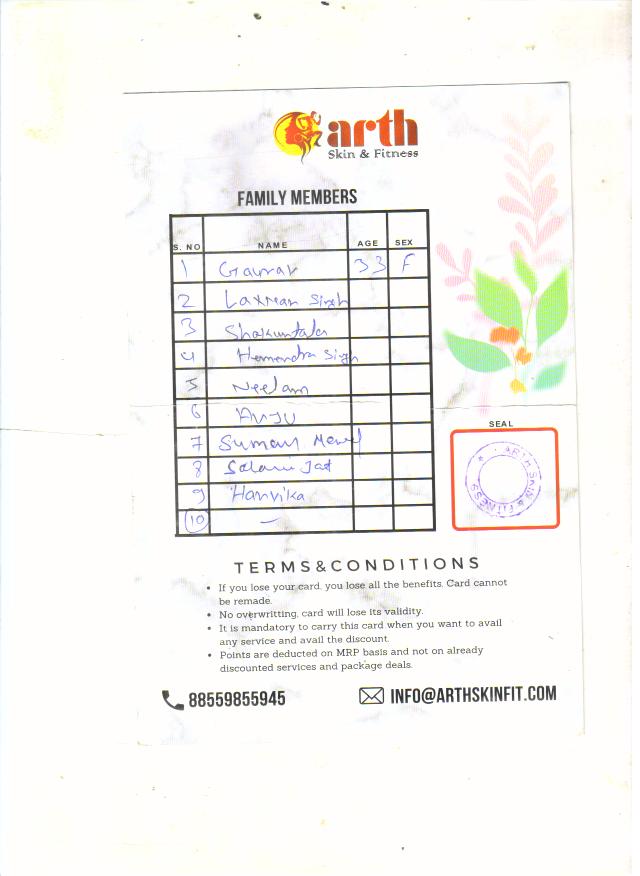 arth
Skin & Fitness
FAMILY MEMBERS
S. NO NAME AGE SEX
1 Gaurav 33 F
2 Laxman Singh
3 Shakuntala
4 Hemendra Singh
5 Neelam
6 Anju
7 Suman
8 Jat
9 Hanvika
10 —
SEAL
ARTH SKIN & FITNESS
TERMS&CONDITIONS
• If you lose your card, you lose all the benefits. Card cannot
be remade.
• No overwritting, card will lose its validity.
• It is mandatory to carry this card when you want to avail
any service and avail the discount.
• Points are deducted on MRP basis and not on already
discounted services and package deals.
88559855945 INFO@ARTHSKINFIT.COM